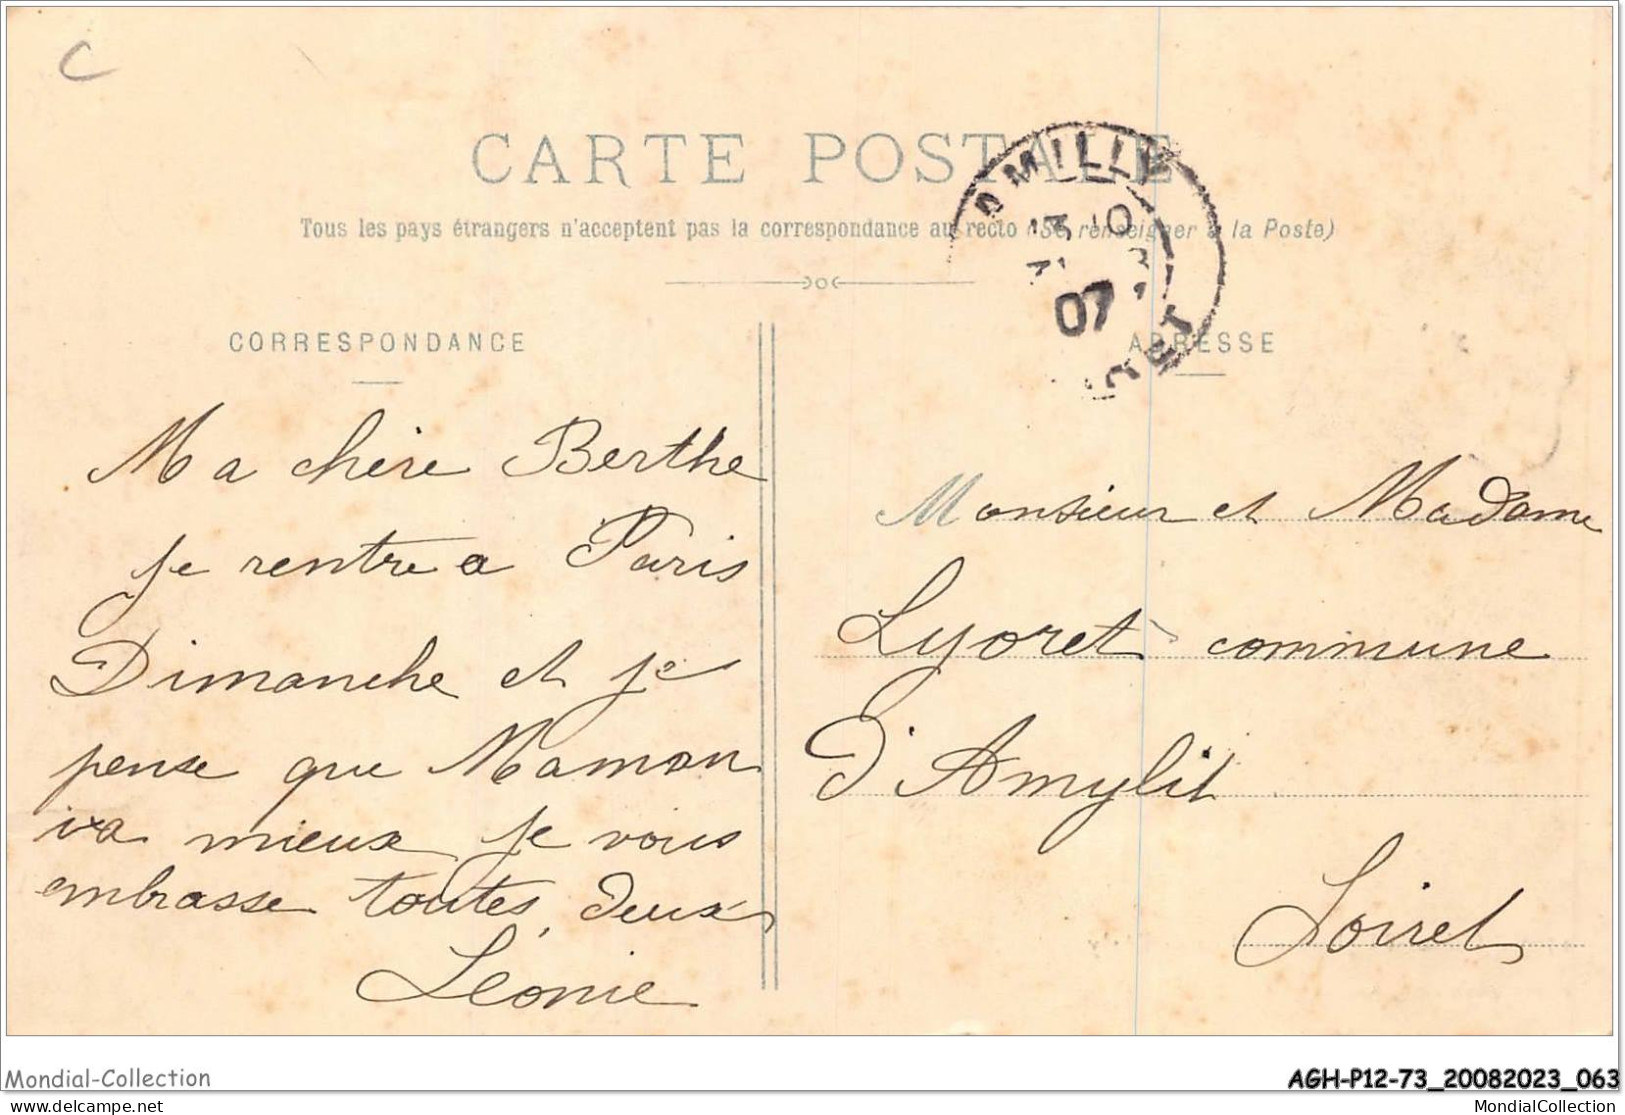 C
CARTE POSTALE
Tous les pays étrangers n'acceptent pas la correspondance au recto (Se renseigner à la Poste)
AMILLY
13 -10
07
LOIRET
CORRESPONDANCE
Ma chère Berthe
je rentre a Paris
Dimanche et je
pense que Maman
va mieux je vous
embrasse toutes deux
Léonie
ADRESSE
Monsieur et Madame
Lyoret commune
d'Amylit
Loiret
Mondial-Collection
AGH-P12-73_20082023_063
the-MC.net
MondialCollection